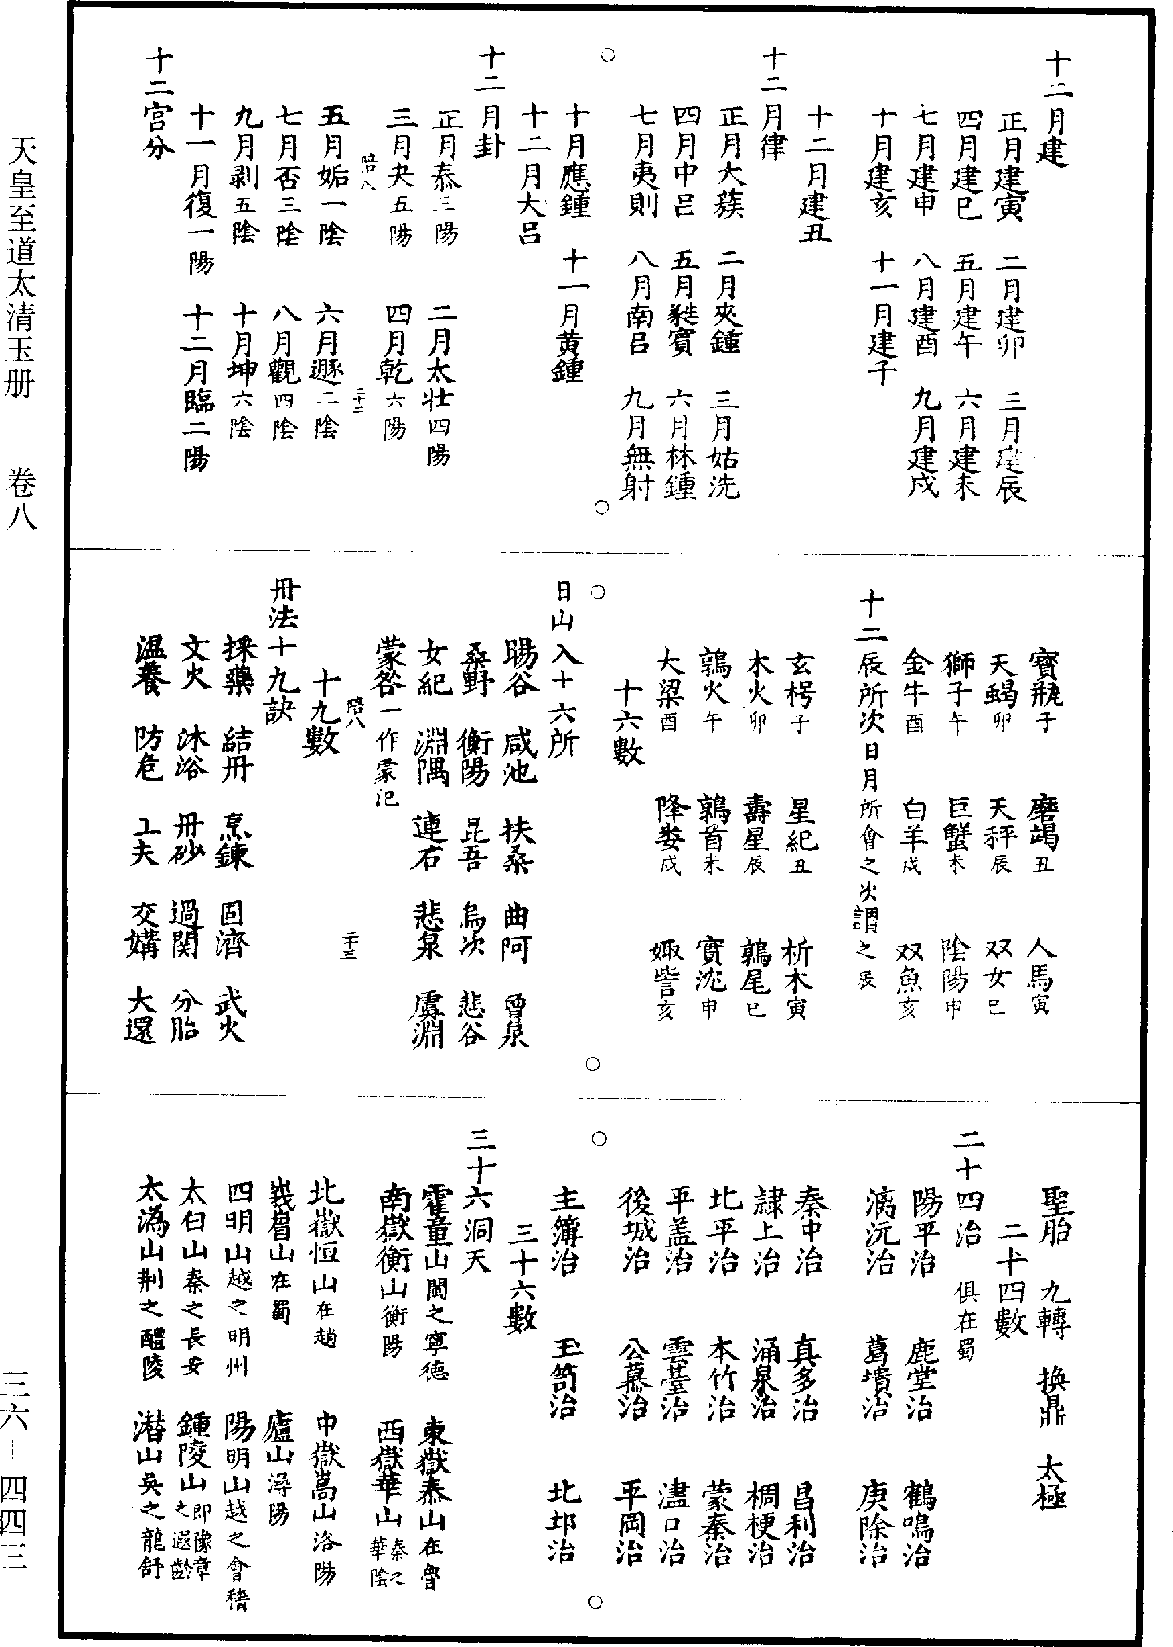 十二月建
正月建寅 二月建卯 三月建辰
四月建巳 五月建午 六月建未
七月建申 八月建酉 九月建戌
十月建亥 十一月建子
十二月建丑
十二月律
正月大簇 二月夾鍾 三月姑洗
四月中吕 五月蕤賓 六月林鍾
七月夷則 八月南吕 九月無射
十月應鍾 十一月黄鍾
十二月大吕
十二月卦
正月泰三陽 二月太壯四陽
三月夬五陽 四月乾六陽
陪八 二十二
五月姤一陰 六月遯二陰
七月否三陰 八月觀四陰
九月剥五陰 十月坤六陰
十一月復一陽 十二月臨二陽
十二宫分
寳瓶子 磨竭丑 人馬寅
天蝎卯 天秤辰 双女巳
獅子午 巨蟹未 陰陽申
金牛酉 白羊戌 双魚亥
十二辰所次日月所會之次謂之辰
玄枵子 星紀丑 析木寅
木火卯 壽星辰 鶉尾巳
鶉火午 鶉首未 實沈申
大梁酉 降婁戌 娵訾亥
十六數
日山入十六所
暘谷 咸池 扶桑 曲阿 曾泉
桑野 衡陽 昆吾 鳥次 悲谷
女紀 淵隅 連石 悲泉 虞淵
蒙谷一作蒙汜
陪八 二十三
十九數
丹法十九訣
採藥 結丹 烹鍊 固濟 武火
文火 沐浴 丹砂 過関 分胎
温養 防危 工夫 交媾 大還
聖胎 九轉 换鼎 太極
二十四數
二十四治 俱在蜀
陽平治 鹿堂治 鶴鳴治
漓沅治 葛璝治 庚除治
秦中治 真多治 昌利治
隷上治 涌泉治 稠梗治
北平治 本竹治 蒙秦治
平盖治 雲䑓治 濜口治
後城治 公慕治 平岡治
主簿治 玉笥治 北邙治
三十六數
三十六洞天
霍童山閩之寧德 東嶽泰山在魯
南嶽衡山衡陽 西嶽華山秦之華陰
北嶽恒山在趙 中嶽嵩山洛陽
峩眉山在蜀 廬山潯陽
四明山越之明州 陽明山越之會稽
太白山秦之長安 鍾陵山即豫章之遐齡
太溈山荆之醴陵 潜山吳之龍舒
天皇至道太清玉册 卷八 三六-四四三